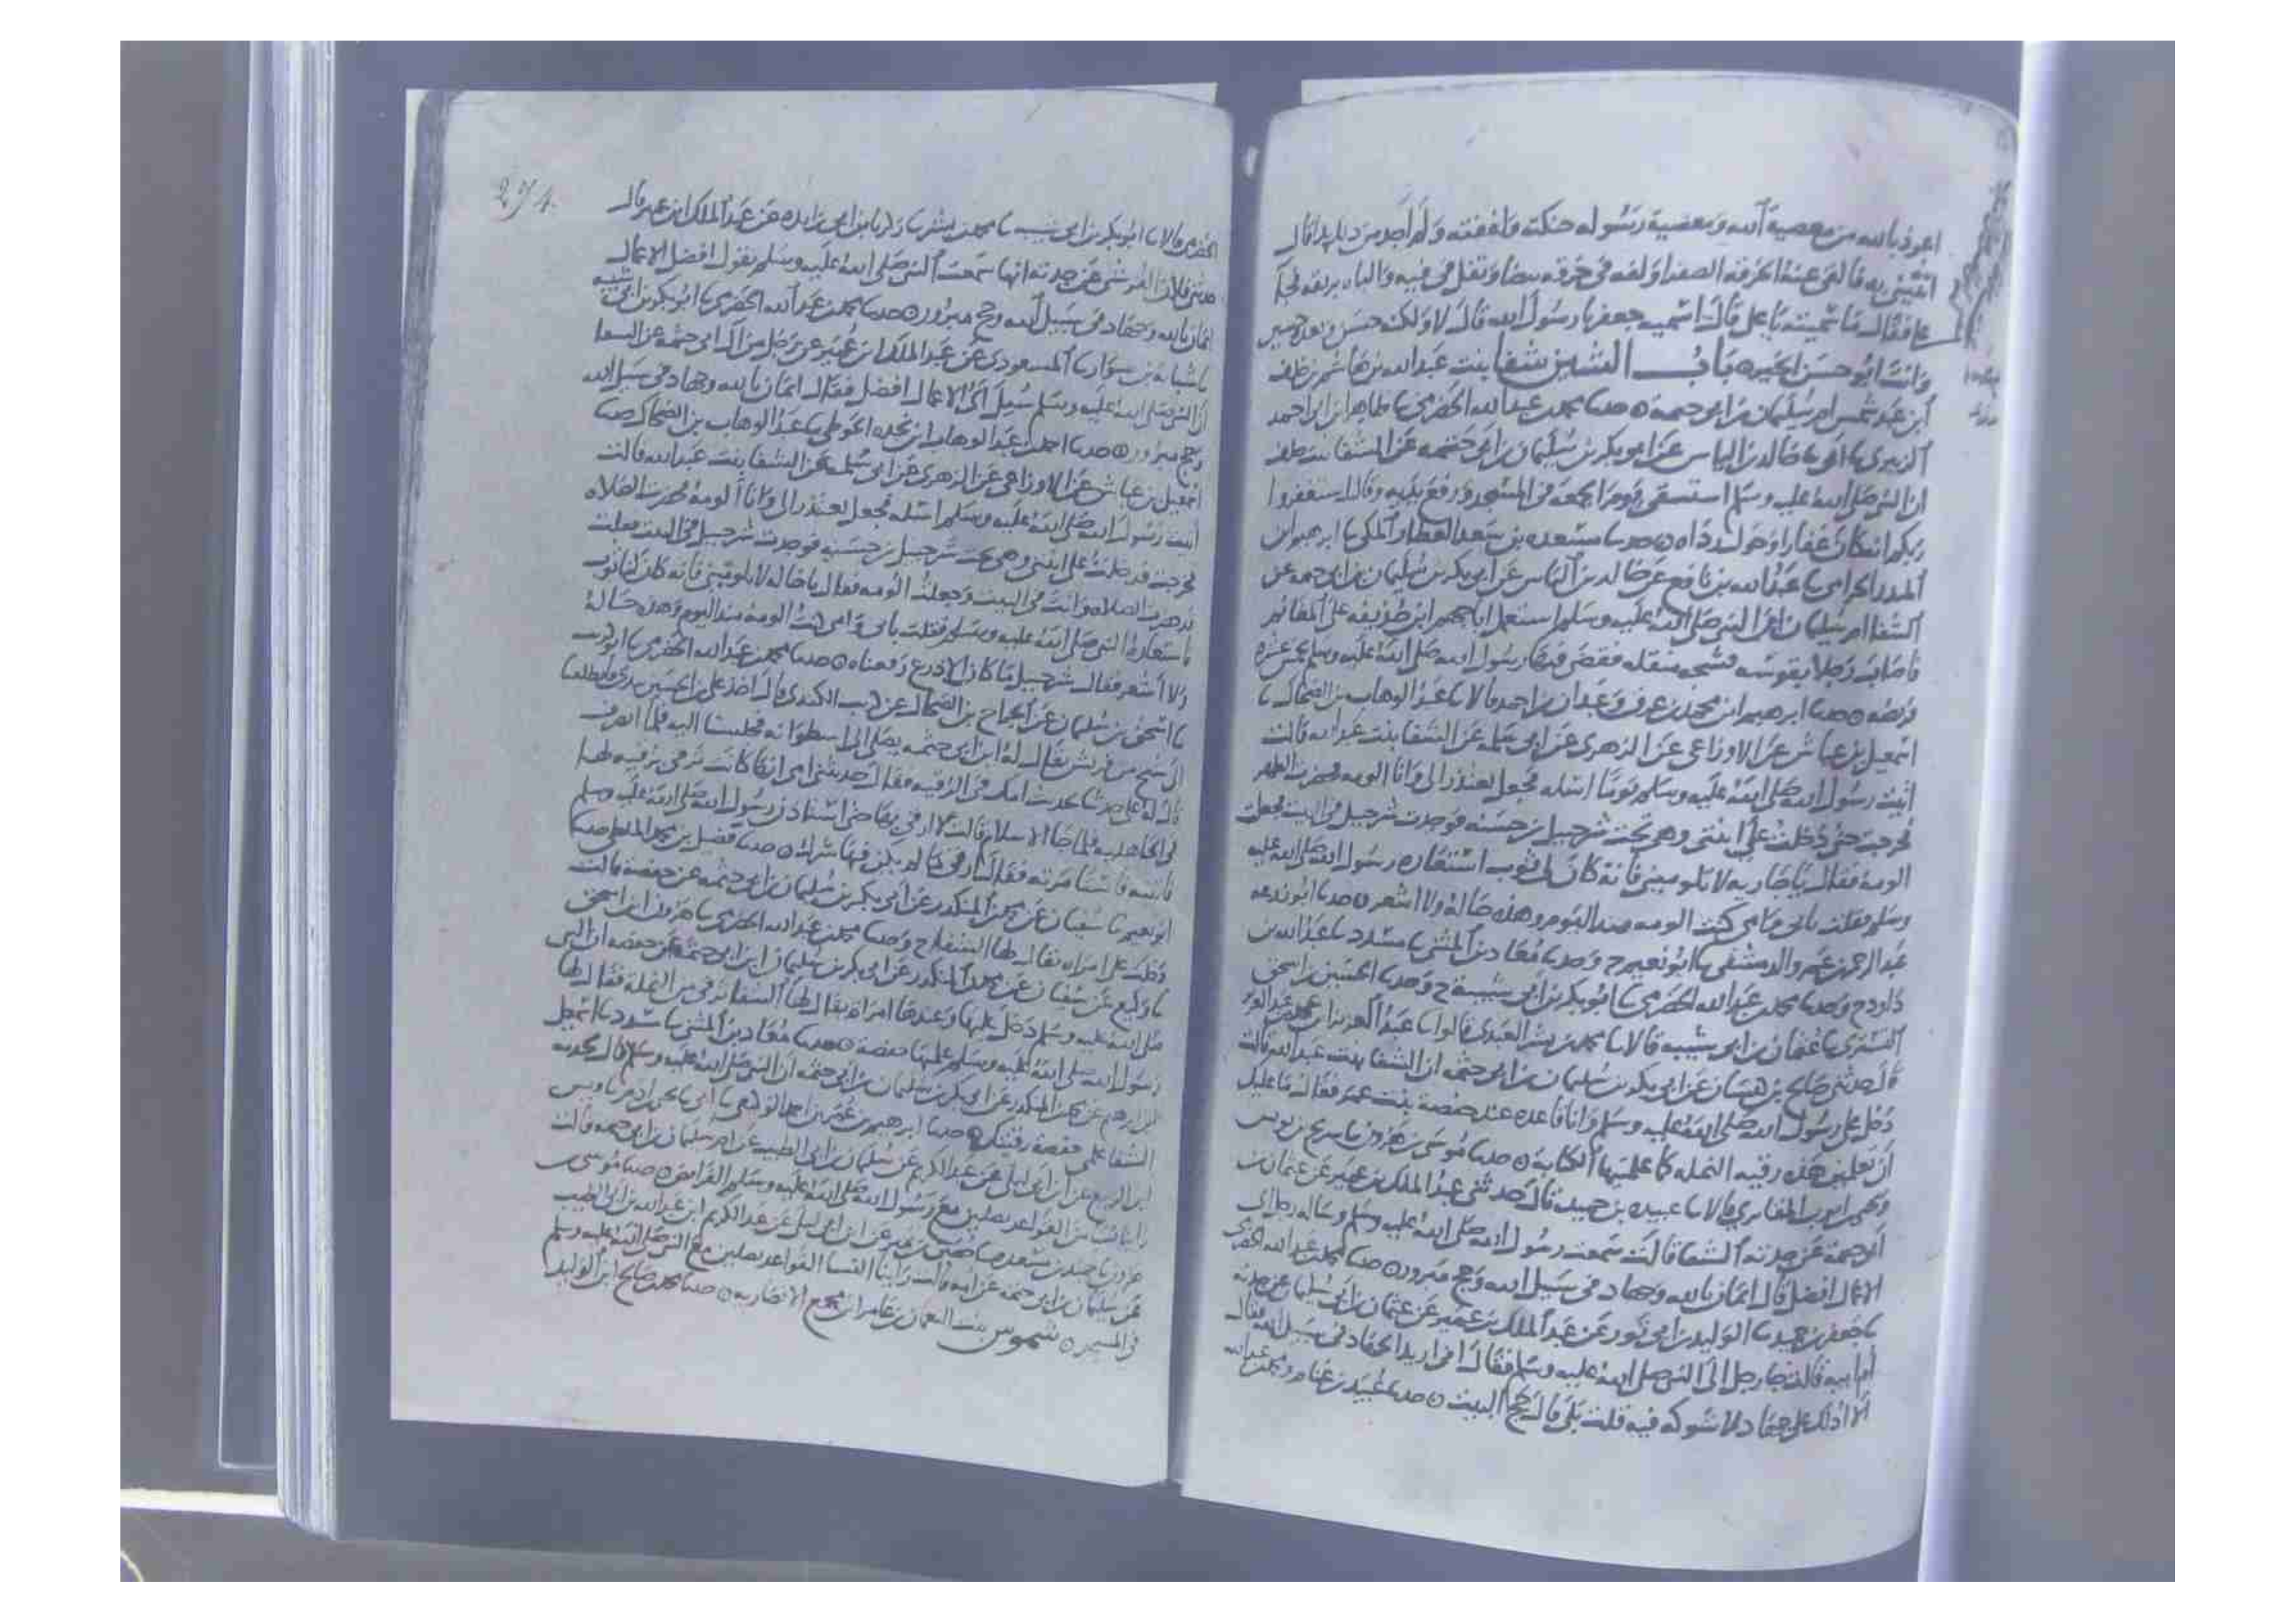 اعوذ بالله من معصية الله ومعصية رسوله حنكته ولففته ولم اجد من ذلك بدا قال
ايتيني به قالقى عنه الخرقة الصفرا ولفه في خرقه بيضا وتفل في فيه والباه بريقه فجا
علي فقال ما سميته يا علي قال اسميه جعفر يا رسول الله قال لا ولكنه حسن وبعده حسين
وانت ابو حسن الخير ه باب الشين شفا بنت عبد الله بن هاشم بن خلف
ابن عبد شمس ام سليمان بن ابي حثمة ه حدسا محمد بن عبد الله الحضرمي سا طاهر بن ابي احمد
الزبيري سا ابي سا خالد بن الياس عن ابي بكر بن سليمان بن ابي حثمه عن الشفا بنت خلف
ان النبي صلى الله عليه وسلم استسقى يوم الجمعه في المسجد ورفع يديه وقال استغفروا
ربكم انه كان غفارا وحول رداه ه حدسا مسعده بن سعد العطار المكي سا ابرهيم ابن
المنذر الحزامي سا عبد الله بن نافع عن خالد بن الياس عن ابي بكر بن سليمان بن ابي حثمه عن
الشفا ام سليمان ان النبي صلى الله عليه وسلم استعمل ابا جهم ابن حذيفه على المغانم
فاصاب رجلا بقوسه فشجه منقله فقضى فيها رسول الله صلى الله عليه وسلم بخمس عشره
فريضه ه حدسا ابرهيم ابن محمد بن عرق وعبدان بن احمد قالا سا عبد الوهاب بن الضحاك سا
اسمعيل بن عياش عن الاوزاعي عن الزهري عن ابي سلمه عن الشفا بنت عبد الله قالت
اتيت رسول الله صلى الله عليه وسلم يوما اسئله فجعل يعتذر الي وانا الومه فحضرت الظهر
فخرجت حتى دخلت على ابنتي وهي تحت شرحبيل بن حسنه فوجدت شرحبيل في البيت فجعلت
الومه فقال يا خاله لا تلوميني فانه كان لي ثوب استعاره رسول الله صلى الله عليه
وسلم فقلت بابي وامي كنت الومه منذ اليوم وهذه حاله ولا اشعر ه حدسا ابو زرعه
عبد الرحمن بن عمرو الدمشقي سا ابو نعيم ح وحدسا معاذ بن المثنى سا مسدد سا عبد الله بن
داود ح وحدسا محمد بن عبد الله الحضرمي سا ابو بكر بن ابي شيبة ح وحدسا الحسين بن اسحق
التستري سا عثمان بن ابي شيبه قالا سا محمد بن بشر العبدي قالوا سا عبد العزيز ابن عمر بن عبد العزيز
قال حدثني صالح بن كيسان عن ابي بكر بن سليمان بن ابي حثمه ان الشفا بنت عبد الله قالت
دخل علي رسول الله صلى الله عليه وسلم وانا قاعده عند حفصة بنت عمر فقال ما عليك
ان تعلمين هذه رقيه النمله كما علمتيها الكتابة ه حدسا موسى بن هرون سا سريج بن يونس
ويحيى ايوب المقابري قالا سا عبيده بن حميد قال حدثني عبد الملك بن عمير عن عثمان بن
ابي حثمة عن جدته الشفا قالت سمعت رسول الله صلى الله عليه وسلم وساله رجل اي
الاعمال افضل قال ايمان بالله وجهاد في سبيل الله وحج مبرور ه حدسا محمد بن عبد الله الحضرمي
سا جعفر بن حميد سا الوليد بن ابي ثور عن عبد الملك بن عمير عن عثمان بن ابي سليمان عن جدته
ام ابيه قالت جا رجل الى النبي صلى الله عليه وسلم فقال اني اريد الجهاد في سبيل الله فقال
الا ادلك على جهاد لا شوكه فيه قلت بلى قال حج البيت ه حدسا عبيد بن غنام ومحمد بن عبد الله
274
الحضرمي قالا سا ابو بكر بن ابي شيبه سا محمد بن بشر سا زكريا بن ابي زايده عن عبد الملك ابن عمير قال
حدثني فلان القرشي عن جدته انها سمعت النبي صلى الله عليه وسلم يقول افضل الاعمال
ايمان بالله وجهاد في سبيل الله وحج مبرور ه حدسا محمد بن عبد الله الحضرمي سا ابو بكر بن ابي شيبه
سا شبابه بن سوار سا المسعودي عن عبد الملك ابن عمير عن رجل من آل ابي حثمه عن الشفا
ان النبي صلى الله عليه وسلم سيل اي الاعمال افضل فقال ايمان بالله وجهاد في سبيل الله
وحج مبرور ه حدسا احمد بن عبد الوهاب ابن نجده الحوطي سا عبد الوهاب بن الضحاك حدسا
اسمعيل بن عياش عن الاوزاعي عن الزهري عن ابي سلمه عن الشفا بنت عبد الله قالت
اتيت رسول الله صلى الله عليه وسلم اسئله فجعل يعتذر الي وانا الومه فحضرت الصلاه
فخرجت فدخلت على ابنتي وهي تحت شرحبيل بن حسنه فوجدت شرحبيل في البيت فقلت
قد حضرت الصلاه وانت في البيت وجعلت الومه فقال يا خاله لا تلوميني فانه كان لنا ثوب
فاستعاره النبي صلى الله عليه وسلم فقلت بابي وامي كنت الومه منذ اليوم وهذه حاله
ولا اشعر فقال شرحبيل ما كان الا درع رقعناه ه حدسا محمد بن عبد الله الحضرمي سا ابو كريب
سا اسحق بن سليمان عن الجراح بن الضحاك عن كريب الكندي قال اخذ علي بن الحسين بيدي فانطلقنا
الى شيخ من قريش يقال له ابن ابي حثمه يصلي الى اسطوانه فجلسنا اليه فلما انصرف
قال له علي حدثنا بحديث امك في الرقيه فقال حدثتني امي انها كانت ترقي برقيه لها
في الجاهليه فلما جا الاسلام قالت لا ارقي بها حتى استاذن رسول الله صلى الله عليه وسلم
فاتته فاستامرته فقال ارقي ما لم يكن فيها شرك ه حدسا فضيل بن محمد الملطي حدسا
ابو نعيم سا سفيان عن محمد بن المنكدر عن ابي بكر بن سليمان بن ابي حثمه عن حفصه قالت
دخلت علي امراه يقال لها الشفا ح وحدسا محمد بن عبد الله الحضرمي سا هرون ابن اسحق
سا وكيع عن سفيان عن محمد بن المنكدر عن ابي بكر بن سليمان ابن ابي حثمه عن حفصه ان النبي
صلى الله عليه وسلم دخل عليها وعندها امراة يقال لها الشفا ترقي من النملة فقال لها
رسول الله صلى الله عليه وسلم علميها حفصة ه حدسا معاذ بن المثنى سا مسدد سا اسمعيل
بن ابرهيم عن محمد بن المنكدر عن ابي بكر بن سليمان بن ابي حثمه ان النبي صلى الله عليه وسلم قال لجدته
الشفا علمي حفصة رقيتك ه حدسا ابرهيم بن عمر بن احمد الوكيعي سا ابي سا يحيى بن ادم سا قيس
ابن الربيع عن ابن ابي ليلى عن عبد الكريم عن سليمان بن ابي الطيب عن ام سليمان بن ابي حثمه قالت
رايت النسا القواعد يصلين مع رسول الله صلى الله عليه وسلم الفرايض ه حدسا موسى بن
هرون سا حميد بن مسعده سا حصين بن نمير عن ابن ابي ليلى عن عبد الكريم ابن عبد الله بن ابي الطيب
عن سليمان بن ابي حثمه عن امه قالت راينا النسا القواعد يصلين مع النبي صلى الله عليه وسلم
في المسجد ه شموس بنت النعمان بن عامر ابن مجمع الانصاريه ه حدسا محمد بن صالح ابن الوليد